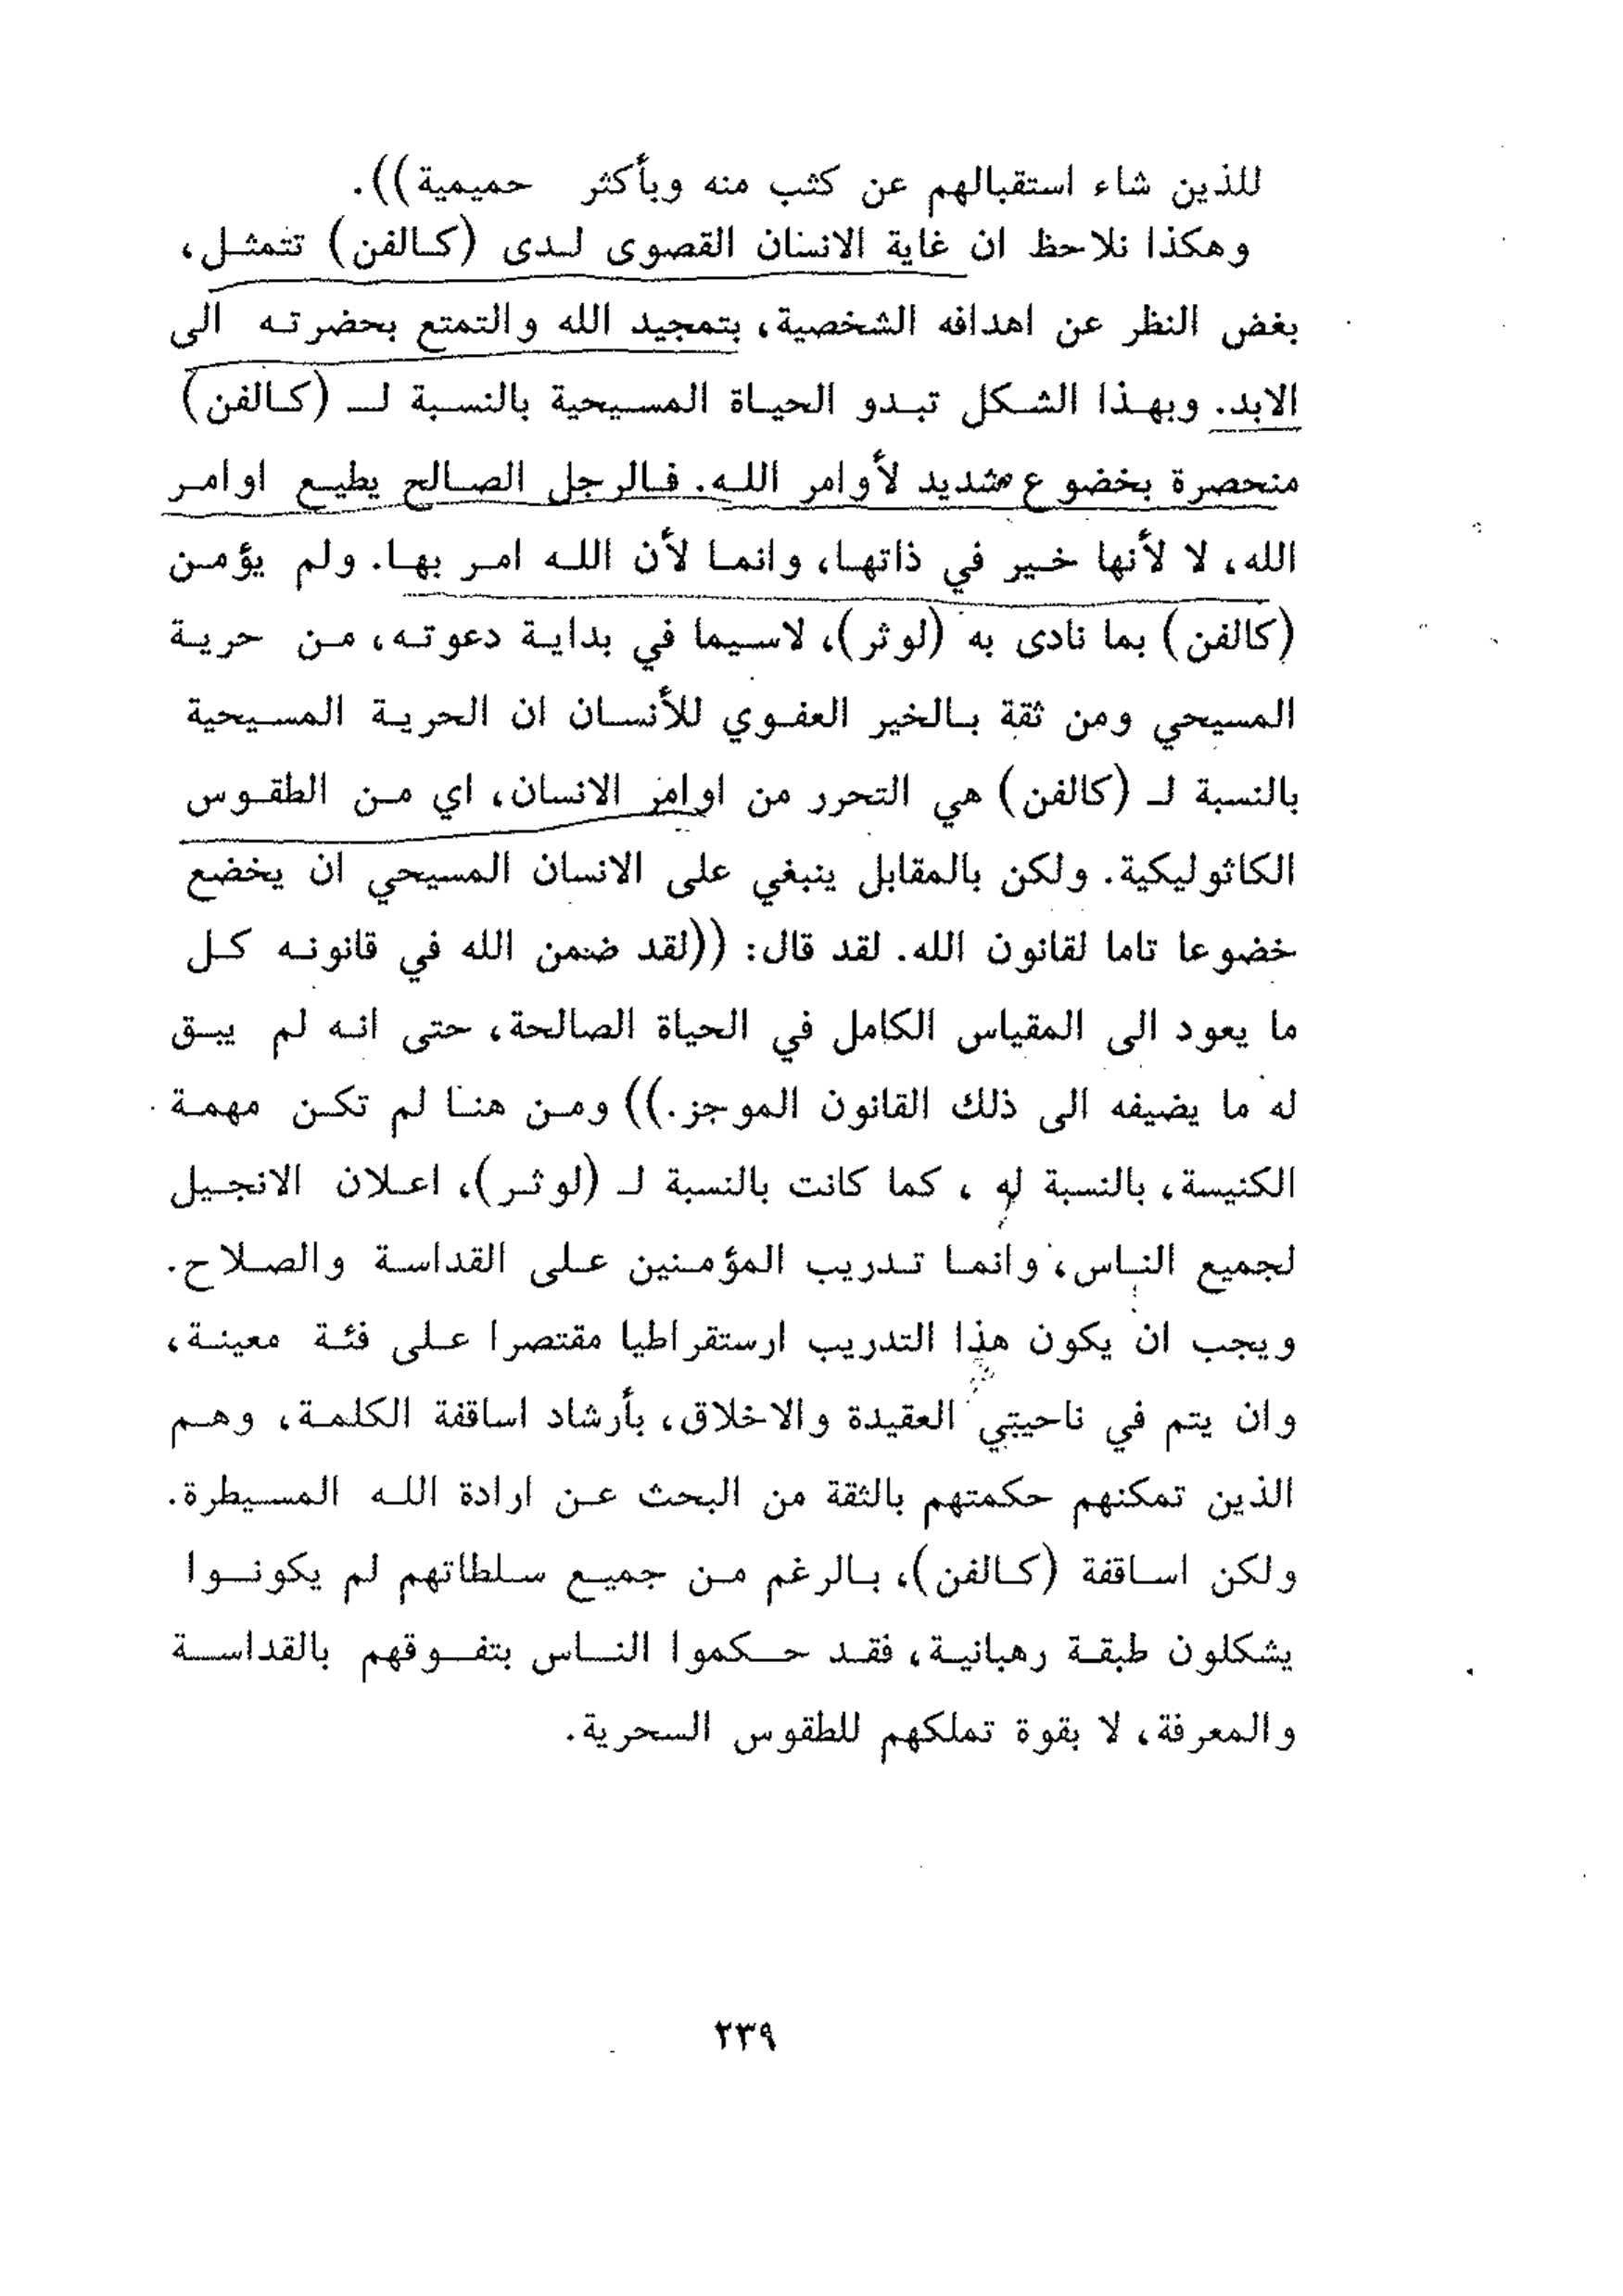 للذين شاء استقبالهم عن كثب منه وبأكثر حميمية)).
وهكذا نلاحظ ان غاية الانسان القصوى لدى (كالفن) تتمثل،
بغض النظر عن اهدافه الشخصية، بتمجيد الله والتمتع بحضرته الى
الابد. وبهذا الشكل تبدو الحياة المسيحية بالنسبة لـ (كالفن)
منحصرة بخضوع شديد لأوامر الله. فالرجل الصالح يطيع اوامر
الله، لا لأنها خير في ذاتها، وانما لأن الله امر بها. ولم يؤمن
(كالفن) بما نادى به (لوثر)، لاسيما في بداية دعوته، من حرية
المسيحي ومن ثقة بالخير العفوي للأنسان ان الحرية المسيحية
بالنسبة لـ (كالفن) هي التحرر من اوامر الانسان، اي من الطقوس
الكاثوليكية. ولكن بالمقابل ينبغي على الانسان المسيحي ان يخضع
خضوعا تاما لقانون الله. لقد قال: ((لقد ضمن الله في قانونه كل
ما يعود الى المقياس الكامل في الحياة الصالحة، حتى انه لم يبق
له ما يضيفه الى ذلك القانون الموجز.)) ومن هنا لم تكن مهمة
الكنيسة، بالنسبة له ، كما كانت بالنسبة لـ (لوثر)، اعلان الانجيل
لجميع الناس، وانما تدريب المؤمنين على القداسة والصلاح.
ويجب ان يكون هذا التدريب ارستقراطيا مقتصرا على فئة معينة،
وان يتم في ناحيتي العقيدة والاخلاق، بأرشاد اساقفة الكلمة، وهم
الذين تمكنهم حكمتهم بالثقة من البحث عن ارادة الله المسيطرة.
ولكن اساقفة (كالفن)، بالرغم من جميع سلطاتهم لم يكونوا
يشكلون طبقة رهبانية، فقد حكموا الناس بتفوقهم بالقداسة
والمعرفة، لا بقوة تملكهم للطقوس السحرية.
٢٣٩